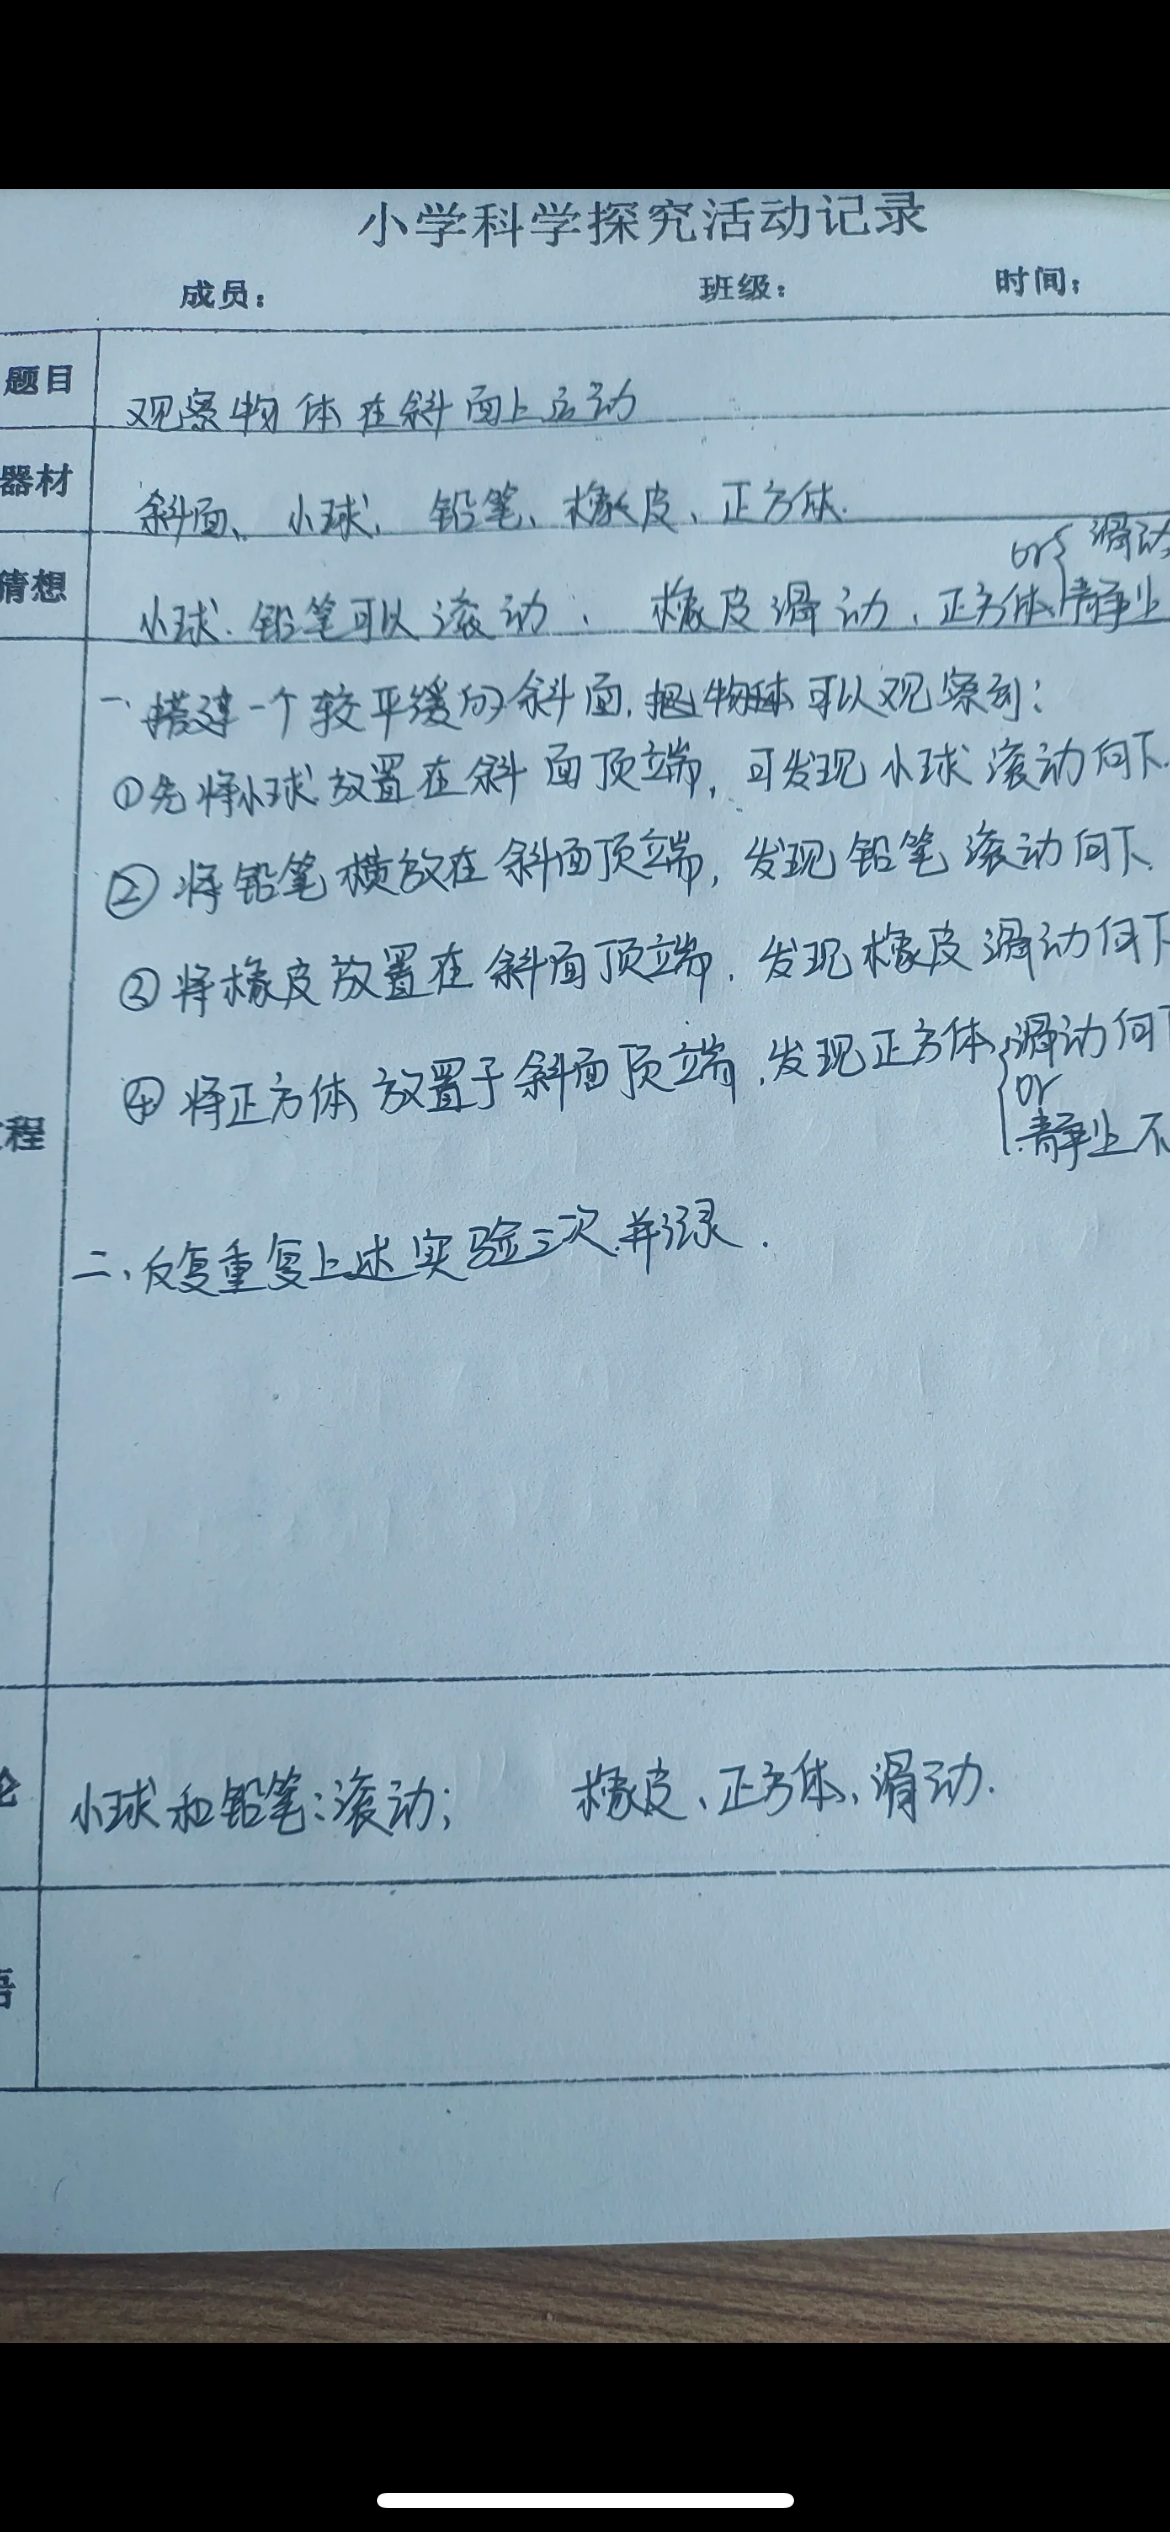 小学科学探究活动记录
成员: 班级: 时间:
题目 观察物体在斜面上运动
器材 斜面、小球、铅笔、橡皮、正方体.
or{ 滑动
猜想 小球.铅笔可以滚动、橡皮滑动、正方体 静止
一、搭建一个较平缓的斜面,把物体可以观察到:
①先将小球放置在斜面顶端,可发现小球滚动向下.
②将铅笔横放在斜面顶端,发现铅笔滚动向下.
③将橡皮放置在斜面顶端.发现橡皮滑动向下
④将正方体放置于斜面顶端,发现正方体 滑动向下
or
程 静止不
二、反复重复上述实验三次.并记录.
论 小球和铅笔:滚动; 橡皮、正方体、滑动.